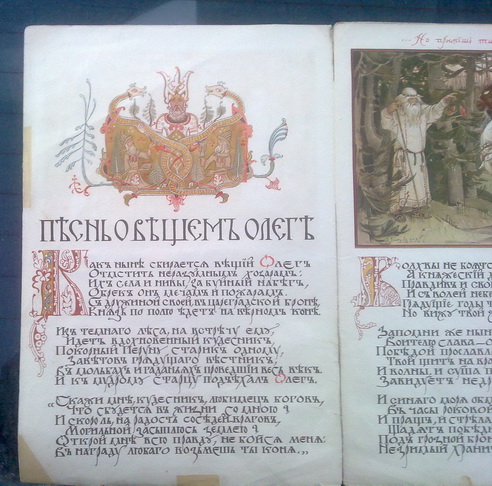 На прiятной
ПѢСНЬ О ВѢЩЕМЪ ОЛЕГѢ
Какъ нынѣ сбирается вѣщiй Олегъ
Отмстить неразумнымъ хозарамъ:
Ихъ села и нивы, за буйный набѣгъ,
Обрекъ онъ мечамъ и пожарамъ.
Съ дружиной своей, въ цареградской бронѣ,
Князь по полю ѣдетъ на вѣрномъ конѣ.
Изъ темнаго лѣса, на встрѣчу ему,
Идетъ вдохновенный кудесникъ,
Покорный Перуну старикъ одному,
Завѣтовъ грядущаго вѣстникъ,
Въ мольбахъ и гаданьяхъ проведшiй весь вѣкъ.
И къ мудрому старцу подъѣхалъ Олегъ.
„Скажи мнѣ, кудесникъ, любимецъ боговъ,
Что сбудется въ жизни со мною?
И скоро-ль, на радость сосѣдей враговъ,
Могильной засыплюсь землею?
Открой мнѣ всю правду, не бойся меня:
Въ награду любаго возьмешь ты коня."
Волхвы не боятся
А княжескiй
Правдивъ и сво
И съ волей небе
Грядущiе годы
Но вижу твой
Запомни же нын
Воителю слава—о
Побѣдой прослав
Твой щитъ на вра
И волны, и суша п
Завидуетъ недр
И синяго моря обм
Въ часы роковой
И пращъ, и стрѣла
Щадятъ побѣди
Подъ грозной брон
Незримый хранит